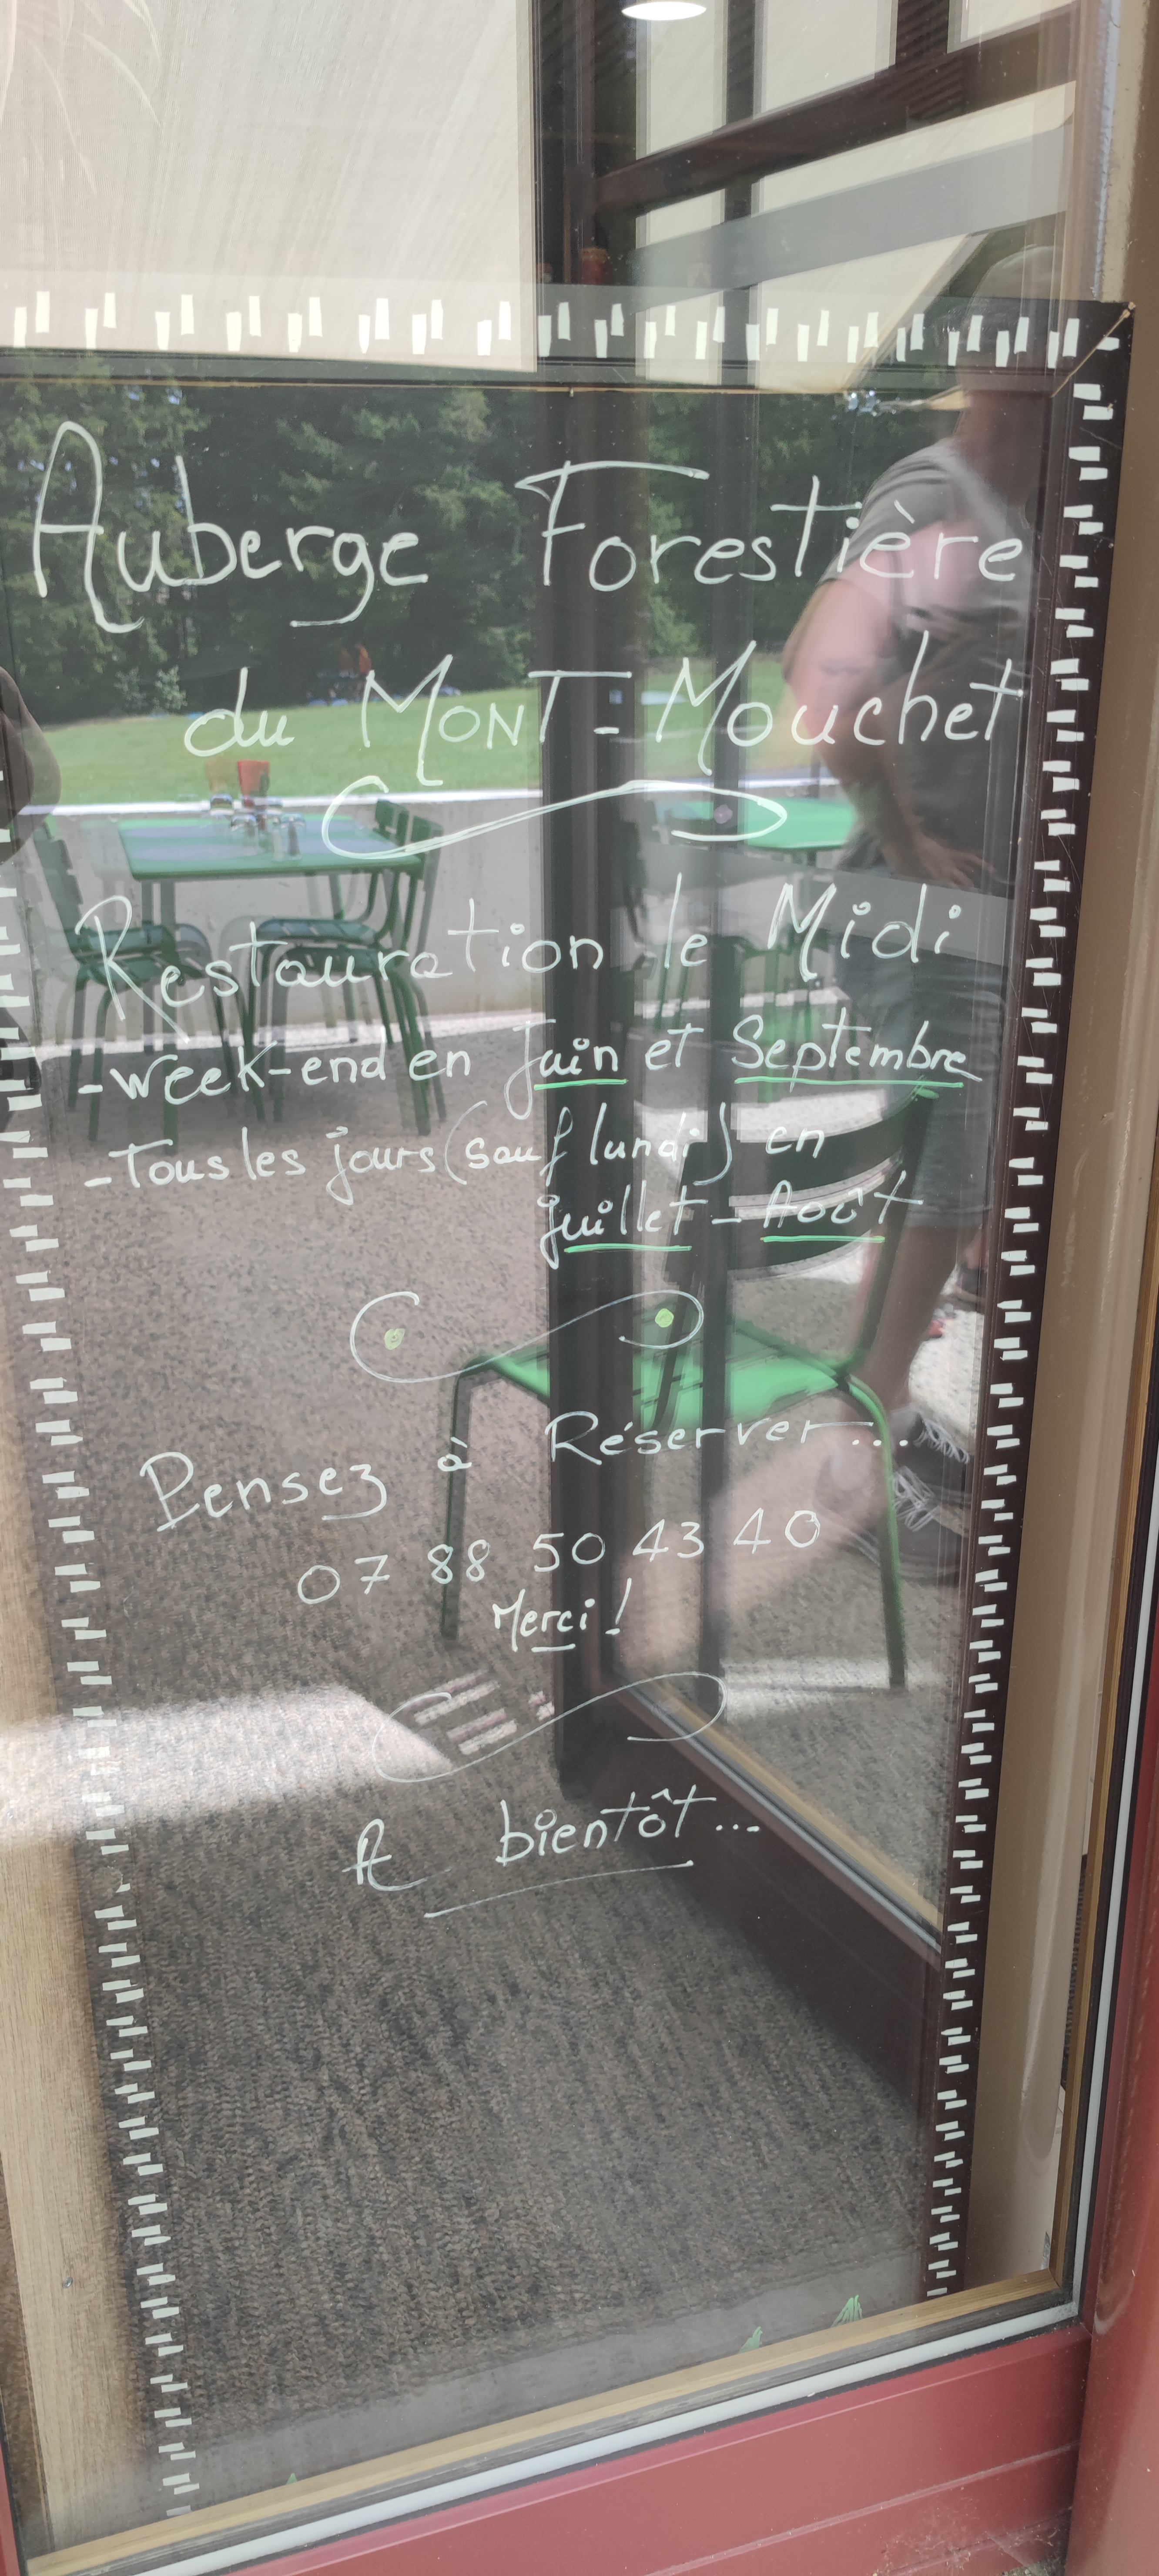 Auberge Forestière
du MONT-Mouchet
Restauration le Midi
-week-end en Juin et Septembre
-Tous les jours (sauf lundi) en
juillet - Août
Pensez à Réserver...
07 88 50 43 40
Merci!
A bientôt...